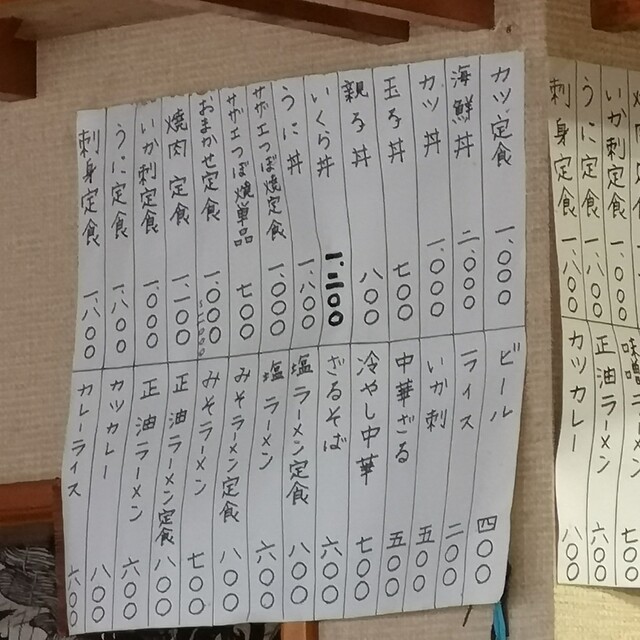 カツ定食 一、〇〇〇
海鮮丼 二、〇〇〇
カツ丼 一、〇〇〇
玉子丼 七〇〇
親子丼 八〇〇
いくら丼
うに丼 一、八〇〇
サザエつぼ焼定食 一、〇〇〇
サザエつぼ焼単品 七〇〇
おまかせ定食 一、〇〇〇
焼肉定食 一、一〇〇
いか刺定食 一、〇〇〇
うに定食 一、八〇〇
刺身定食 一、八〇〇
ビール 四〇〇
ライス 二〇〇
いか刺 五〇〇
中華ざる 五〇〇
冷やし中華 七〇〇
ざるそば 六〇〇
塩ラーメン定食 八〇〇
塩ラーメン 六〇〇
みそラーメン定食 八〇〇
みそラーメン 七〇〇
正油ラーメン定食 八〇〇
正油ラーメン 六〇〇
カツカレー 八〇〇
カレーライス 六〇〇
いか刺定食 一、〇〇〇
うに定食 一、八〇〇
刺身定食 一、八〇〇
味噌ラーメン 七〇〇
正油ラーメン 六〇〇
カツカレー 八〇〇